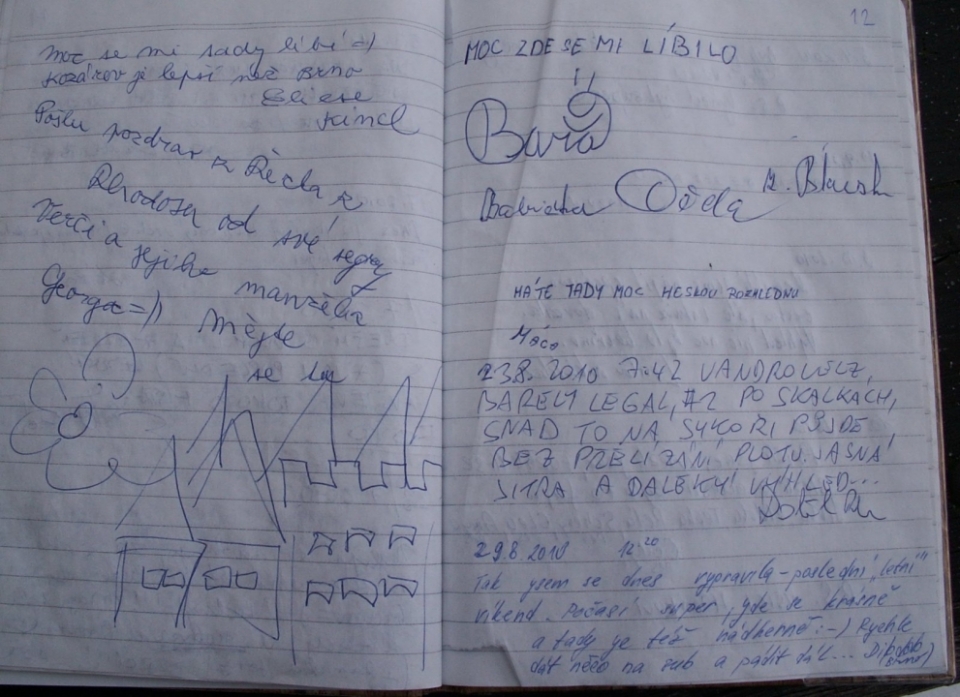 Moc se mi tady líbí =)
Kozárov je lepší než Brno
Pošlu pozdrav z Řecka z
Rhodosu od své segry
Verči a jejího manžela
George =))
Mějte
se
12
MOC ZDE SE MI LÍBILO
Bára
Babička Děda
MÁTE TADY MOC HESKOU ROZHLEDNU
23.8. 2010 7:42 VANDROVEC,
BARELY LEGAL, #2 PO SKALKÁCH,
SNAD TO NA SÝKOŘI PŮJDE
BEZ PŘELÍZÁNÍ PLOTU. JASNÁ
JITRA A DALEKÝ VÝHLED...
29.8.2010 12.20
Tak jsem se dnes vypravila - poslední "letní"
víkend. Počasí super, jde se krásně
a tady je též nádherně :-) Rychle
dát něco na zub a pádit dál...